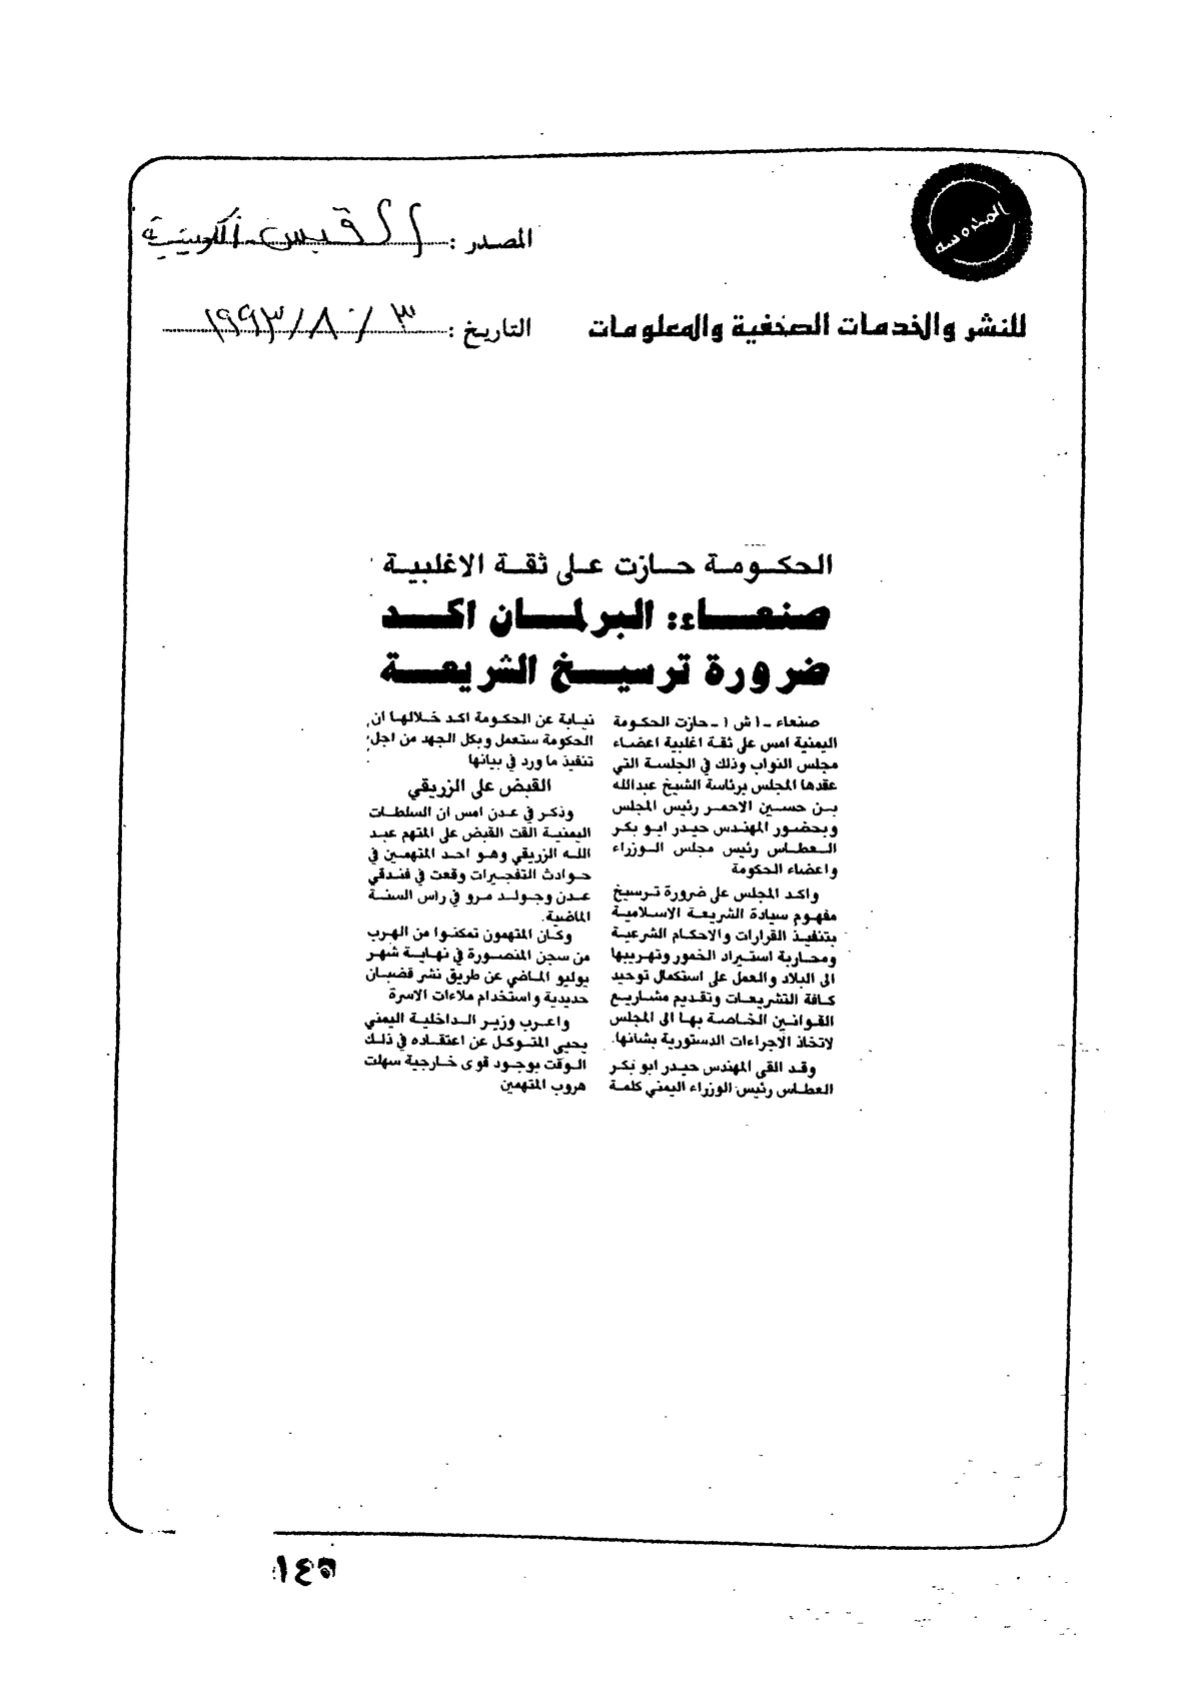 المصدر : القبس الكويتية
للنشر والخدمات الصحفية والمعلومات
التاريخ : ٣ / ٨ / ١٩٩٣
الحكومة حازت على ثقة الاغلبية
صنعاء: البرلمان اكد
ضرورة ترسيخ الشريعة
صنعاء - ا ش ا - حازت الحكومة
اليمنية امس على ثقة اغلبية اعضاء
مجلس النواب وذلك في الجلسة التي
عقدها المجلس برئاسة الشيخ عبدالله
بن حسين الاحمر رئيس المجلس
وبحضور المهندس حيدر ابو بكر
العطاس رئيس مجلس الوزراء
واعضاء الحكومة
واكد المجلس على ضرورة ترسيخ
مفهوم سيادة الشريعة الاسلامية
بتنفيذ القرارات والاحكام الشرعية
ومحاربة استيراد الخمور وتهريبها
الى البلاد والعمل على استكمال توحيد
كافة التشريعات وتقديم مشاريع
القوانين الخاصة بها الى المجلس
لاتخاذ الاجراءات الدستورية بشانها.
وقد القى المهندس حيدر ابو بكر
العطاس رئيس الوزراء اليمني كلمة
نيابة عن الحكومة اكد خلالها ان
الحكومة ستعمل وبكل الجهد من اجل
تنفيذ ما ورد في بيانها
القبض على الزريقي
وذكر في عدن امس ان السلطات
اليمنية القت القبض على المتهم عبد
الله الزريقي وهو احد المتهمين في
حوادث التفجيرات وقعت في فندقي
عدن وجولد مرو في راس السنة
الماضية.
وكان المتهمون تمكنوا من الهرب
من سجن المنصورة في نهاية شهر
يوليو الماضي عن طريق نشر قضبان
حديدية واستخدام ملاءات الاسرة
واعرب وزير الداخلية اليمني
يحيى المتوكل عن اعتقاده في ذلك
الوقت بوجود قوى خارجية سهلت
هروب المتهمين